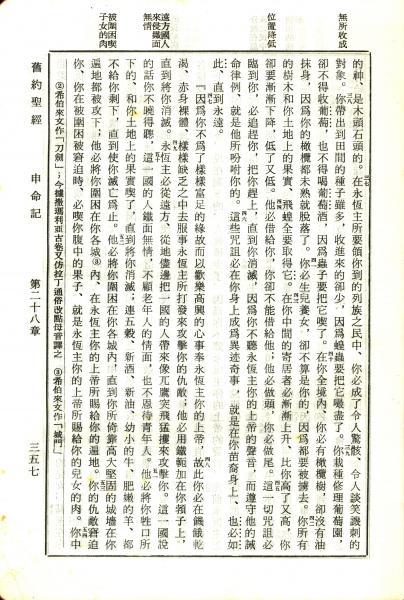 無所收成
位置降低
遠方國人
來侵鐵面
無情
被圍困喫
子女的肉
的神、是木頭石頭的。在永恆主所要領你到的列族之民中、你必成了令人驚駭、令人談笑譏刺的
對象。你帶出到田間的種子雖多，收進來的卻少，因為蝗蟲要把它喫盡了。你栽種修理葡萄園，
卻不得收葡萄，也不得喝葡萄酒，因為蟲子要把它喫了。在你全境內、你必有橄欖樹，卻沒有油
抹身，因為你的橄欖都未熟就脫落了。你必生兒養女，卻不算是你的，因為都要被擄去。你所有
的樹木和你土地上的果實、飛蝗全要取得它。在你中間的寄居者必漸漸上升、比你高了又高，你
卻要漸漸下降、低了又低。他必借給你，你卻不能借給他；他必做頭，你必做尾。這一切咒詛必
臨到你，必追趕你，把你趕上，直到你消滅，因為你不聽永恆主你的上帝的聲音，而遵守他的誡
命律例、就是他所吩咐你的。這些咒詛必在你身上成為異迹奇事，就是在你苗裔身上、也必如
此、直到永遠。
『因為你不為了樣樣富足的緣故而以歡樂高興的心事奉永恆主你的上帝，故此你必在饑餓乾
渴、赤身裸體、樣樣缺乏之中去服事永恆主所打發來攻擊你的仇敵；他必用鐵軛加在你頸子上，
直到將你消滅。永恆主必從遠方、從地儘邊把一國的人帶來像兀鷹突飛猛撲來攻擊你。這一國說
的話你不曉得聽，這一國的人鐵面無情，不顧老年人的情面，也不恩待青年人。他必將你牲口所
下的、和你土地上的果實喫了，直到將你消滅；連五榖、新酒、新油、幼小的牛、肥嫩的羊、都
不給你剩下，直到使你滅亡為止。他必將你圍困在你各城內，直到你所倚靠高大堅固的城墻在你
遍地都被攻下；他必將你圍困在你各城內、在永恆主你的上帝所賜給你的遍地。你的仇敵窘迫
你、你在被圍困被窘迫時、必喫你腹中的果子、就是永恆主你的上帝所賜給你的兒女的肉。你中
②希伯來文作「刀劍」；今據撒瑪利亞古卷又仿拉丁通俗改點母音譯之　③希伯來文作「城門」
舊約聖經　申命記　第二十八章　三五七